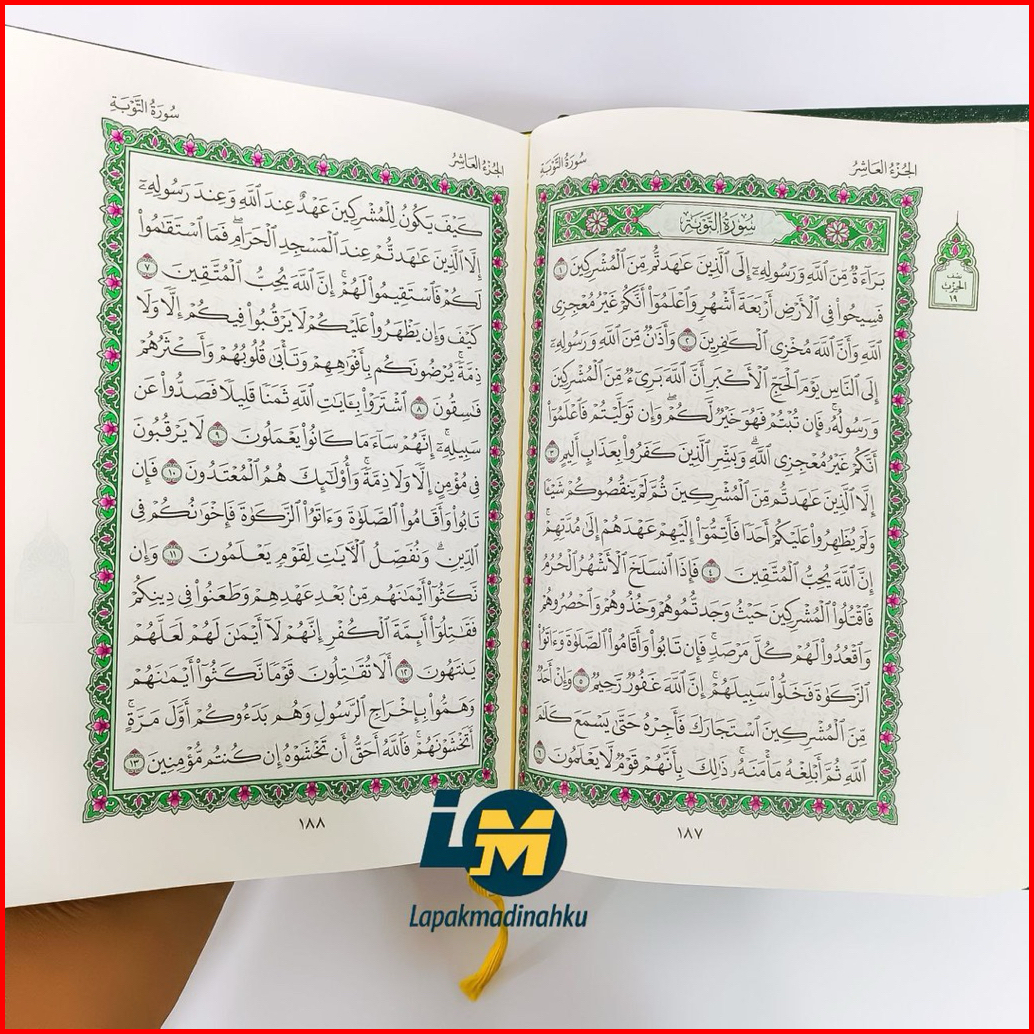 الجُزْءُ العَاشِرُ
سُورَةُ التَّوْبَةِ
سُورَةُ التَّوْبَةِ
بَرَآءَةٌ مِّنَ ٱللَّهِ وَرَسُولِهِۦٓ إِلَى ٱلَّذِينَ عَٰهَدتُّم مِّنَ ٱلْمُشْرِكِينَ ١
فَسِيحُوا۟ فِى ٱلْأَرْضِ أَرْبَعَةَ أَشْهُرٍ وَٱعْلَمُوٓا۟ أَنَّكُمْ غَيْرُ مُعْجِزِى
ٱللَّهِ وَأَنَّ ٱللَّهَ مُخْزِى ٱلْكَٰفِرِينَ ٢ وَأَذَٰنٌ مِّنَ ٱللَّهِ وَرَسُولِهِۦٓ
إِلَى ٱلنَّاسِ يَوْمَ ٱلْحَجِّ ٱلْأَكْبَرِ أَنَّ ٱللَّهَ بَرِىٓءٌ مِّنَ ٱلْمُشْرِكِينَ
وَرَسُولُهُۥ فَإِن تُبْتُمْ فَهُوَ خَيْرٌ لَّكُمْ وَإِن تَوَلَّيْتُمْ فَٱعْلَمُوٓا۟
أَنَّكُمْ غَيْرُ مُعْجِزِى ٱللَّهِ وَبَشِّرِ ٱلَّذِينَ كَفَرُوا۟ بِعَذَابٍ أَلِيمٍ ٣
إِلَّا ٱلَّذِينَ عَٰهَدتُّم مِّنَ ٱلْمُشْرِكِينَ ثُمَّ لَمْ يَنقُصُوكُمْ شَيْـًٔا
وَلَمْ يُظَٰهِرُوا۟ عَلَيْكُمْ أَحَدًا فَأَتِمُّوٓا۟ إِلَيْهِمْ عَهْدَهُمْ إِلَىٰ مُدَّتِهِمْ
إِنَّ ٱللَّهَ يُحِبُّ ٱلْمُتَّقِينَ ٤ فَإِذَا ٱنسَلَخَ ٱلْأَشْهُرُ ٱلْحُرُمُ
فَٱقْتُلُوا۟ ٱلْمُشْرِكِينَ حَيْثُ وَجَدتُّمُوهُمْ وَخُذُوهُمْ وَٱحْصُرُوهُمْ
وَٱقْعُدُوا۟ لَهُمْ كُلَّ مَرْصَدٍ فَإِن تَابُوا۟ وَأَقَامُوا۟ ٱلصَّلَوٰةَ وَءَاتَوُا۟
ٱلزَّكَوٰةَ فَخَلُّوا۟ سَبِيلَهُمْ إِنَّ ٱللَّهَ غَفُورٌ رَّحِيمٌ ٥ وَإِنْ أَحَدٌ
مِّنَ ٱلْمُشْرِكِينَ ٱسْتَجَارَكَ فَأَجِرْهُ حَتَّىٰ يَسْمَعَ كَلَٰمَ
ٱللَّهِ ثُمَّ أَبْلِغْهُ مَأْمَنَهُۥ ذَٰلِكَ بِأَنَّهُمْ قَوْمٌ لَّا يَعْلَمُونَ ٦
نصف
الحزب
١٩
١٨٧
الجُزْءُ العَاشِرُ
سُورَةُ التَّوْبَةِ
كَيْفَ يَكُونُ لِلْمُشْرِكِينَ عَهْدٌ عِندَ ٱللَّهِ وَعِندَ رَسُولِهِۦٓ
إِلَّا ٱلَّذِينَ عَٰهَدتُّمْ عِندَ ٱلْمَسْجِدِ ٱلْحَرَامِ فَمَا ٱسْتَقَٰمُوا۟
لَكُمْ فَٱسْتَقِيمُوا۟ لَهُمْ إِنَّ ٱللَّهَ يُحِبُّ ٱلْمُتَّقِينَ ٧
كَيْفَ وَإِن يَظْهَرُوا۟ عَلَيْكُمْ لَا يَرْقُبُوا۟ فِيكُمْ إِلًّا وَلَا
ذِمَّةً يُرْضُونَكُم بِأَفْوَٰهِهِمْ وَتَأْبَىٰ قُلُوبُهُمْ وَأَكْثَرُهُمْ
فَٰسِقُونَ ٨ ٱشْتَرَوْا۟ بِـَٔايَٰتِ ٱللَّهِ ثَمَنًا قَلِيلًا فَصَدُّوا۟ عَن
سَبِيلِهِۦٓ إِنَّهُمْ سَآءَ مَا كَانُوا۟ يَعْمَلُونَ ٩ لَا يَرْقُبُونَ
فِى مُؤْمِنٍ إِلًّا وَلَا ذِمَّةً وَأُو۟لَٰٓئِكَ هُمُ ٱلْمُعْتَدُونَ ١٠ فَإِن
تَابُوا۟ وَأَقَامُوا۟ ٱلصَّلَوٰةَ وَءَاتَوُا۟ ٱلزَّكَوٰةَ فَإِخْوَٰنُكُمْ فِى
ٱلدِّينِ وَنُفَصِّلُ ٱلْـَٔايَٰتِ لِقَوْمٍ يَعْلَمُونَ ١١ وَإِن
نَّكَثُوٓا۟ أَيْمَٰنَهُم مِّنۢ بَعْدِ عَهْدِهِمْ وَطَعَنُوا۟ فِى دِينِكُمْ
فَقَٰتِلُوٓا۟ أَئِمَّةَ ٱلْكُفْرِ إِنَّهُمْ لَآ أَيْمَٰنَ لَهُمْ لَعَلَّهُمْ
يَنتَهُونَ ١٢ أَلَا تُقَٰتِلُونَ قَوْمًا نَّكَثُوٓا۟ أَيْمَٰنَهُمْ
وَهَمُّوا۟ بِإِخْرَاجِ ٱلرَّسُولِ وَهُم بَدَءُوكُمْ أَوَّلَ مَرَّةٍ
أَتَخْشَوْنَهُمْ فَٱللَّهُ أَحَقُّ أَن تَخْشَوْهُ إِن كُنتُم مُّؤْمِنِينَ ١٣
١٨٨
LM
Lapakmadinahku